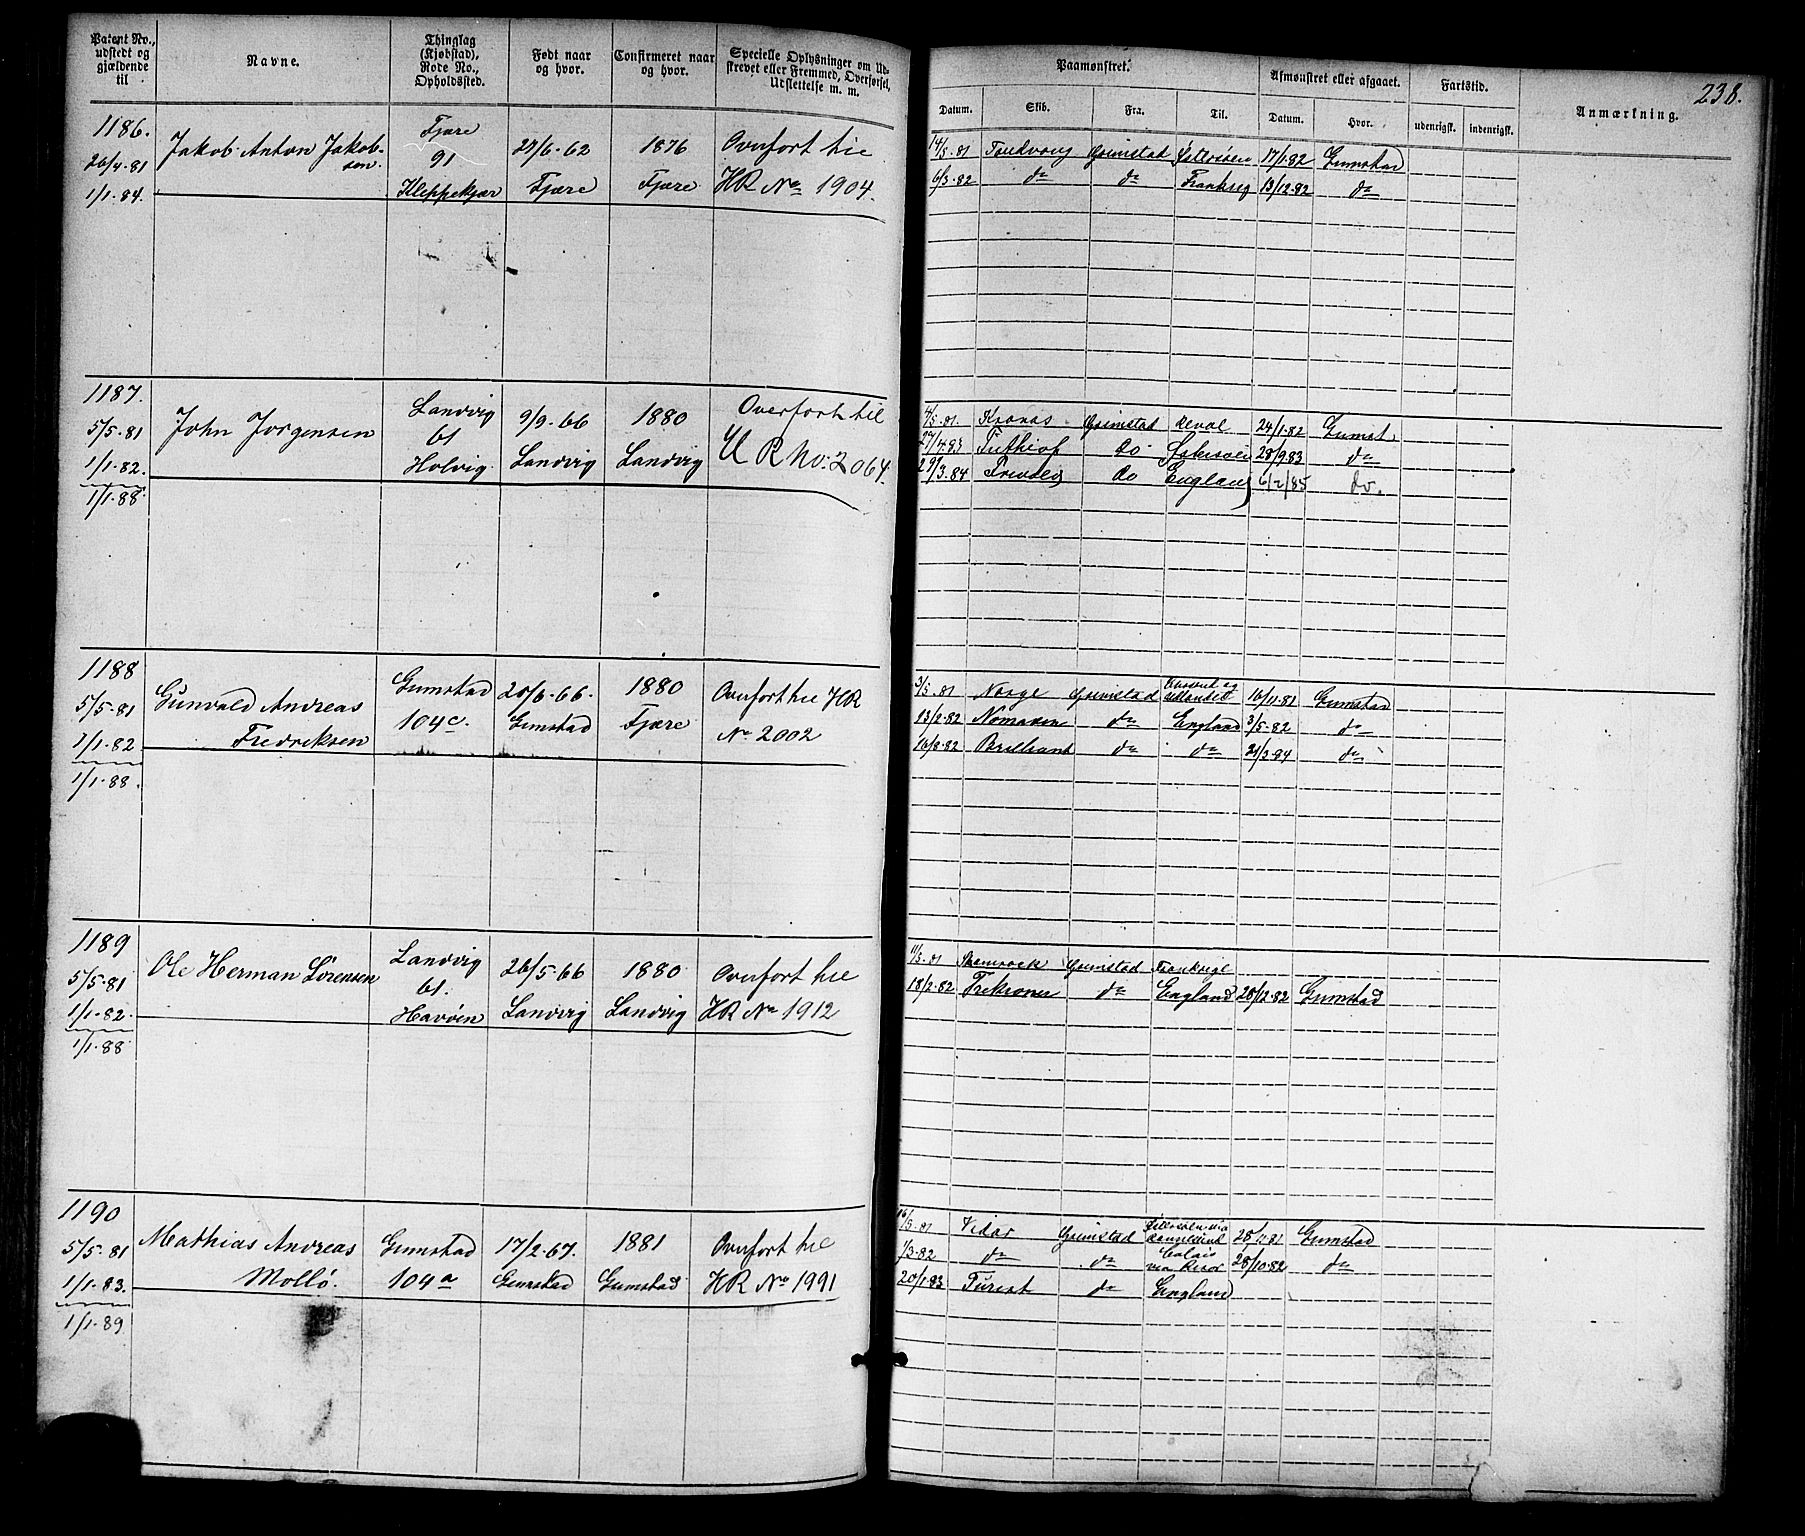 238.
Patent No., udstedt og gjældende til
Navne.
Thinglag (Kjøbstad), Rode No., Opholdssted.
Født naar og hvor.
Confirmeret naar og hvor.
Specielle Oplysninger om Udskrevet eller Fremmed, Overførsel, Udslettelse m. m.
Paamønstret.
Afmønstret eller afgaaet.
Fartstid.
Anmærkning.
Datum. Skib. Fra. Til. Datum. Hvor. udenrigsk. indenrigsk.
1186.
26/4.81
1/1.84.
Jakob Anton Jakobsen
Fjære
91
Kleppekjær
29/6-62
Fjære
1876
Fjære
Overført til
HR No 1904.
14/5.81 Grimstad Østersøen 17/1.82 Grimstad
6/3.82 do do Frankrig 13/12.82 do
1187.
5/5.81
1/1.82.
1/1.88.
John Jorgensen
Landvig
61
Holvig.
9/9-66
Landvig
1880
Landvig
Overført til
U R No. 2064.
4/5.81. Grimstad Reval 24/1.82 Grimst.
27/4.83 do Østersøen 28/9.83 do
29/3.84 do England 6/2/85 do.
1188
5/5.81
1/1.82
1/1.88.
Gunvald Andreas
Fredriksen
Grimstad
104c.
Grimstad
1880
Fjære
Overført til HR
No 2002
3/5.81 Norge Grimstad 16/11.81 Grimstad
13/2.82 Nomaden do England 3/5.82 do
16/8.82 Brilliant do do 21/3.84 do
1189
5/5.81
1/1.82.
1/1.88
Ole Herman Sørensen
Landvig
61.
Havøen
26/5-66
Landvig
1880
Landvig
Overført til
HR No 1912
11/5.81 Grimstad Frankrige
18/2.82 Trekroner do England 28/12.82 Grimstad
1190
5/5.81
1/1.83.
1/1.89
Mathias Andreas
Mollø.
Grimstad
104a
17/2-67.
Grimstad
1881
Grimstad
Overført til
HR No 1991
16/5.81 Vidar Grimstad Grimstad
1/3.82 do do Calais via Risør 28/10.82 do
20/1.83 Turist do England